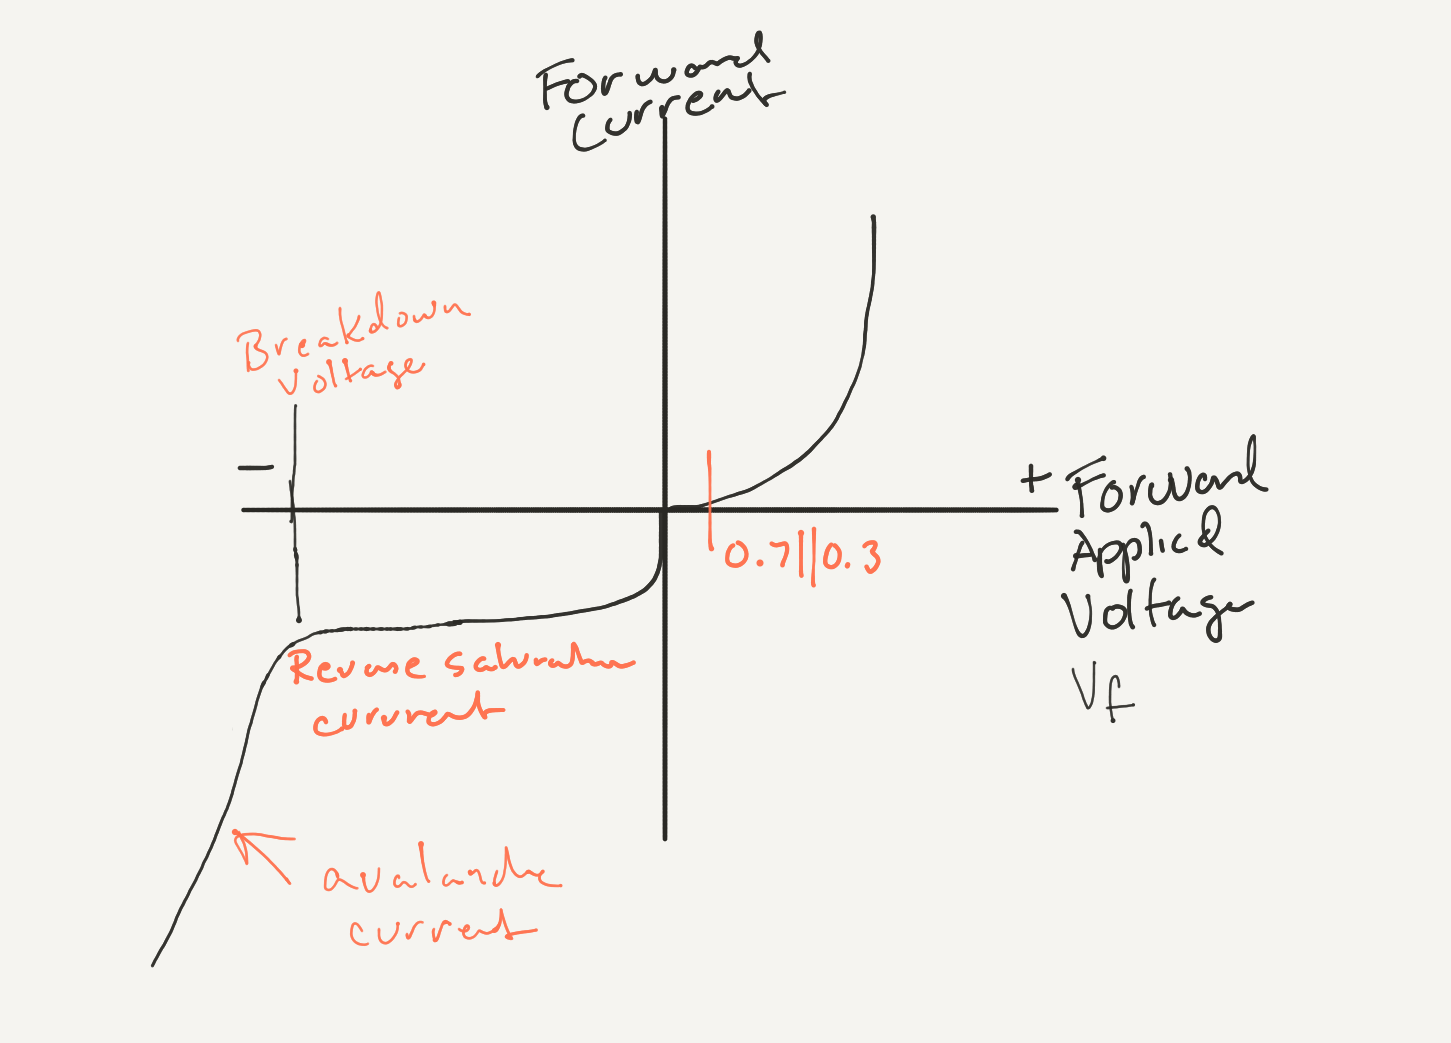 Forward
Current
Breakdown
Voltage
−
+ Forward
Applied
Voltage
Vf
0.7||0.3
Reverse saturation
current
avalanche
current